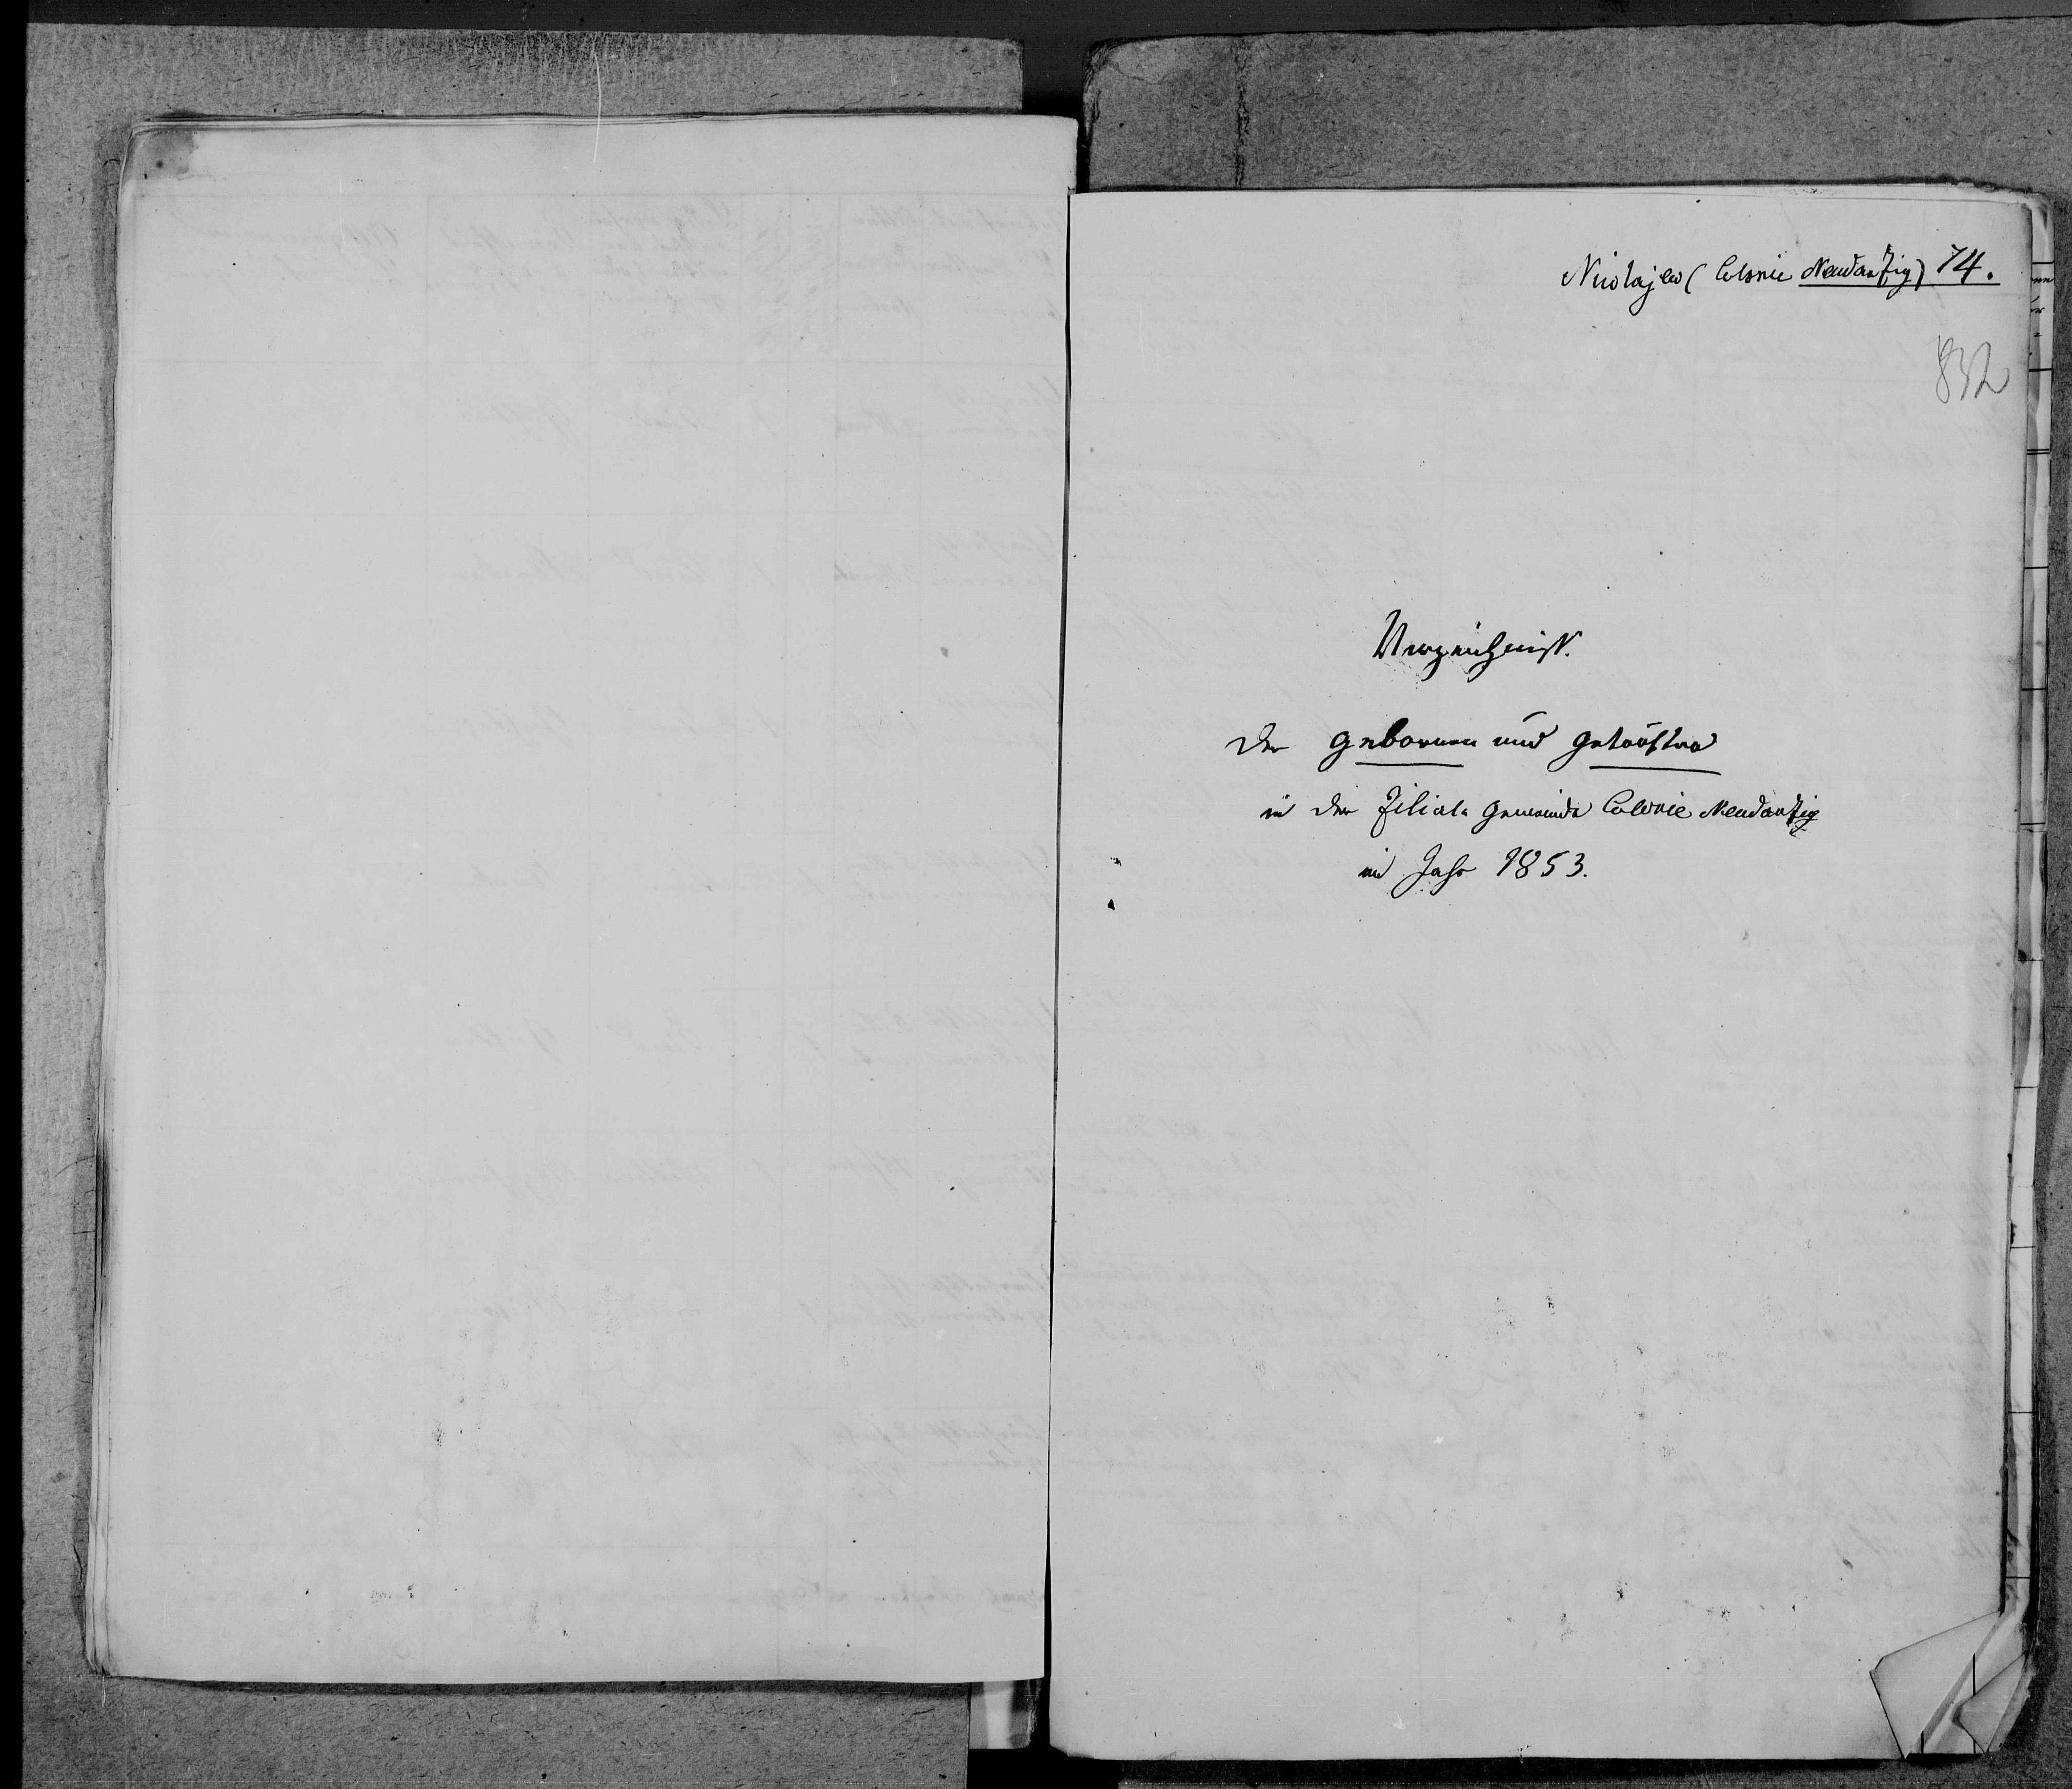 Nicolajew (Colonie Neudantzig) 74.
832
Verzeichniß.
der gebornen und getauften
in der Filial-Gemeinde Colonie Neudantzig
im Jahr 1853.